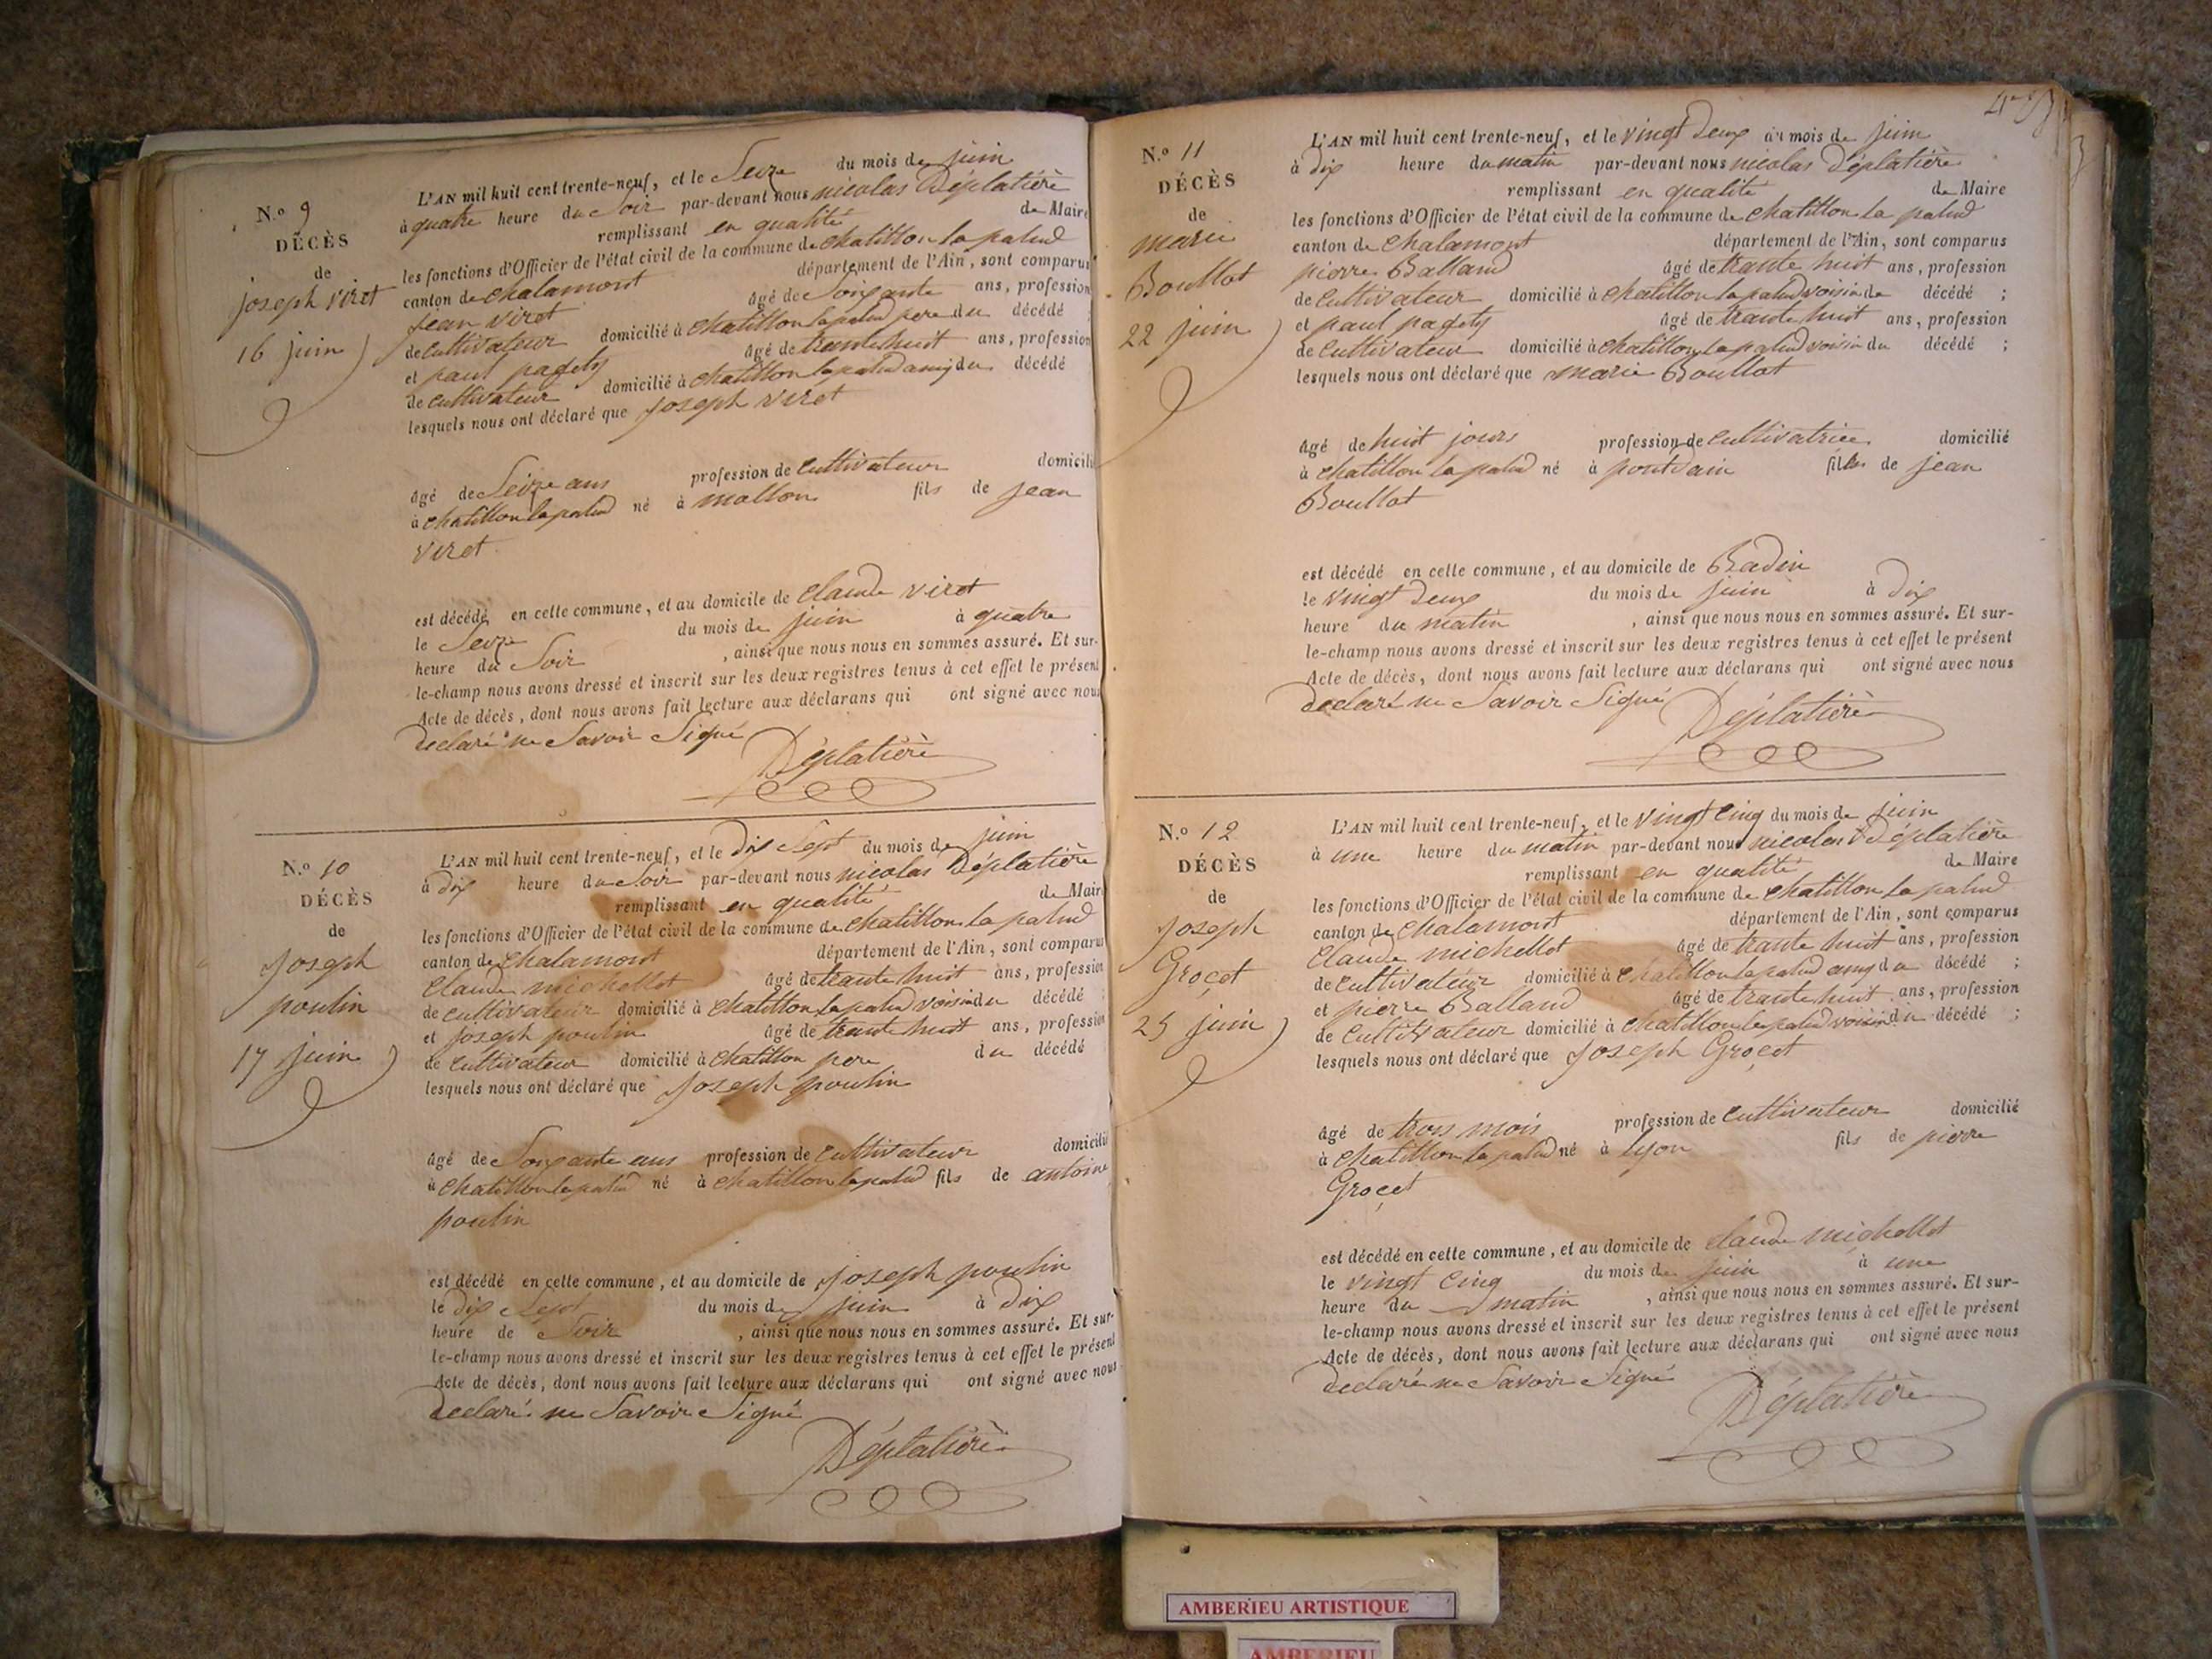 N.o 9
DÉCÈS
de
joseph viret
16 juin
L'AN mil huit cent trente-neuf, et le Seize du mois de juin
à quatre heure du Soir par-devant nous nicolas Déplatière
remplissant en qualité de Maire
les fonctions d'Officier de l'état civil de la commune de chatillon la palud
canton de chalamont département de l'Ain, sont comparus
jean viret âgé de Soixante ans, profession
de cultivateur domicilié à chatillon la palud pere du décédé
et paul pagety âgé de trante huit ans, profession
de cultivateur domicilié à chatillon la palud amy du décédé
lesquels nous ont déclaré que joseph viret
âgé de Seize ans profession de cultivateur domicili
à chatillon la palud né à mollon fils de jean
viret
est décédé en cette commune, et au domicile de claude viret
le Seize du mois de juin à quatre
heure du Soir , ainsi que nous nous en sommes assuré. Et sur-
le-champ nous avons dressé et inscrit sur les deux registres tenus à cet effet le présent
Acte de décès, dont nous avons fait lecture aux déclarans qui ont signé avec nous
declaré ne Savoir Signé
Déplatière
N.o 10
DÉCÈS
de
Joseph
poulin
17 juin
L'AN mil huit cent trente-neuf, et le dix Sept du mois de juin
à dix heure du Soir par-devant nous nicolas Déplatière
remplissant en qualité de Maire
les fonctions d'Officier de l'état civil de la commune de chatillon la palud
canton de chalamont département de l'Ain, sont comparus
Claude michollot âgé de trante huit ans, profession
de cultivateur domicilié à chatillon la palud voisin du décédé
et joseph poulin âgé de trante huit ans, profession
de cultivateur domicilié à chatillon pere du décédé
lesquels nous ont déclaré que Joseph poulin
âgé de Soixante ans profession de cultivateur domicilié
à chatillon la palud né à chatillon la palud fils de antoine
poulin
est décédé en cette commune, et au domicile de joseph poulin
le dix Sept du mois de juin à dix
heure de Soir , ainsi que nous nous en sommes assuré. Et sur-
le-champ nous avons dressé et inscrit sur les deux registres tenus à cet effet le présent
Acte de décès, dont nous avons fait lecture aux déclarans qui ont signé avec nous
declaré ne Savoir Signé
Déplatière
N.o 11
DÉCÈS
de
marie
Boullot
22 juin
L'AN mil huit cent trente-neuf, et le vingt deux du mois de juin
à dix heure du matin par-devant nous nicolas Déplatière
remplissant en qualité de Maire
les fonctions d'Officier de l'état civil de la commune de chatillon la palud
canton de chalamont département de l'Ain, sont comparus
pierre Balland âgé de trante huit ans, profession
de cultivateur domicilié à chatillon la palud voisin de décédé ;
et paul pagety âgé de trante huit ans, profession
de cultivateur domicilié à chatillon la palud voisin du décédé ;
lesquels nous ont déclaré que marie Boullot
âgé de huit jours profession de cultivatrice domicilié
à chatillon la palud né à pont dain filles de jean
Boullot
est décédé en cette commune, et au domicile de Badin
le vingt deux du mois de juin à dix
heure du matin , ainsi que nous nous en sommes assuré. Et sur-
le-champ nous avons dressé et inscrit sur les deux registres tenus à cet effet le présent
Acte de décès, dont nous avons fait lecture aux déclarans qui ont signé avec nous
declaré ne Savoir Signé
Déplatière
N.o 12
DÉCÈS
de
Joseph
Groçet
25 juin
L'AN mil huit cent trente-neuf, et le vingt cinq du mois de juin
à une heure du matin par-devant nous nicolas Déplatière
remplissant en qualité de Maire
les fonctions d'Officier de l'état civil de la commune de chatillon la palud
canton de chalamont département de l'Ain, sont comparus
Claude michollot âgé de trante huit ans, profession
de cultivateur domicilié à chatillon la palud amy du décédé ;
et pierre Balland âgé de trante huit ans, profession
de cultivateur domicilié à chatillon la palud voisin du décédé ;
lesquels nous ont déclaré que Joseph Groçet
âgé de trois mois profession de cultivateur domicilié
à chatillon la palud né à lyon fils de pierre
Groçet
est décédé en cette commune, et au domicile de claude michollot
le vingt cinq du mois de juin à une
heure du matin , ainsi que nous nous en sommes assuré. Et sur-
le-champ nous avons dressé et inscrit sur les deux registres tenus à cet effet le présent
Acte de décès, dont nous avons fait lecture aux déclarans qui ont signé avec nous
declaré ne Savoir Signé
Déplatière
AMBERIEU ARTISTIQUE
AMBERIEU